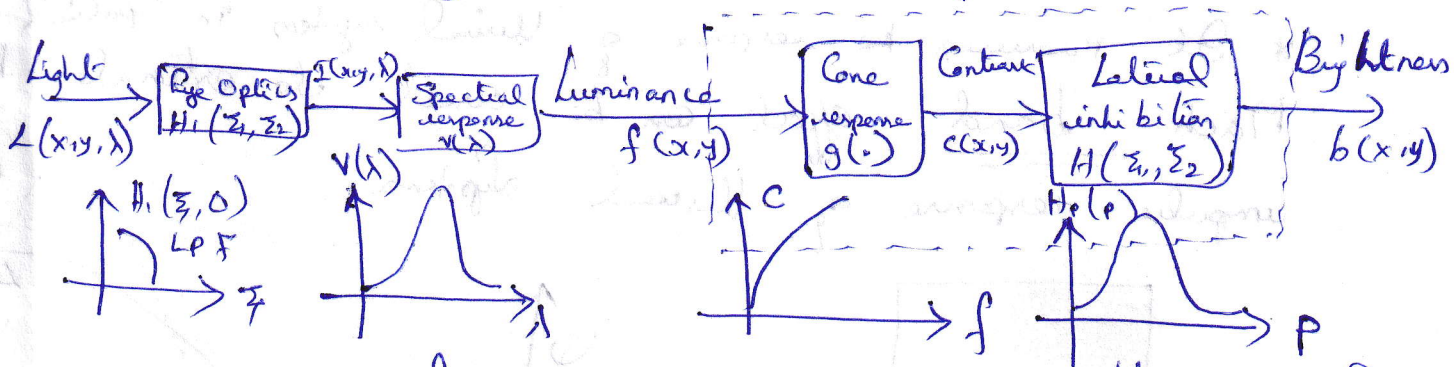 Light
L(x,y,λ)
Eye Optics
H₁(ξ₁,ξ₂)
I(x,y,λ)
Spectral
response
v(λ)
Luminance
f(x,y)
Cone
response
g(.)
Contrast
c(x,y)
Lateral
inhibition
H(ξ₁,ξ₂)
Brightness
b(x,y)
H₁(ξ,0)
LPF
ξ₁
V(λ)
λ
C
f
Hp(p)
P